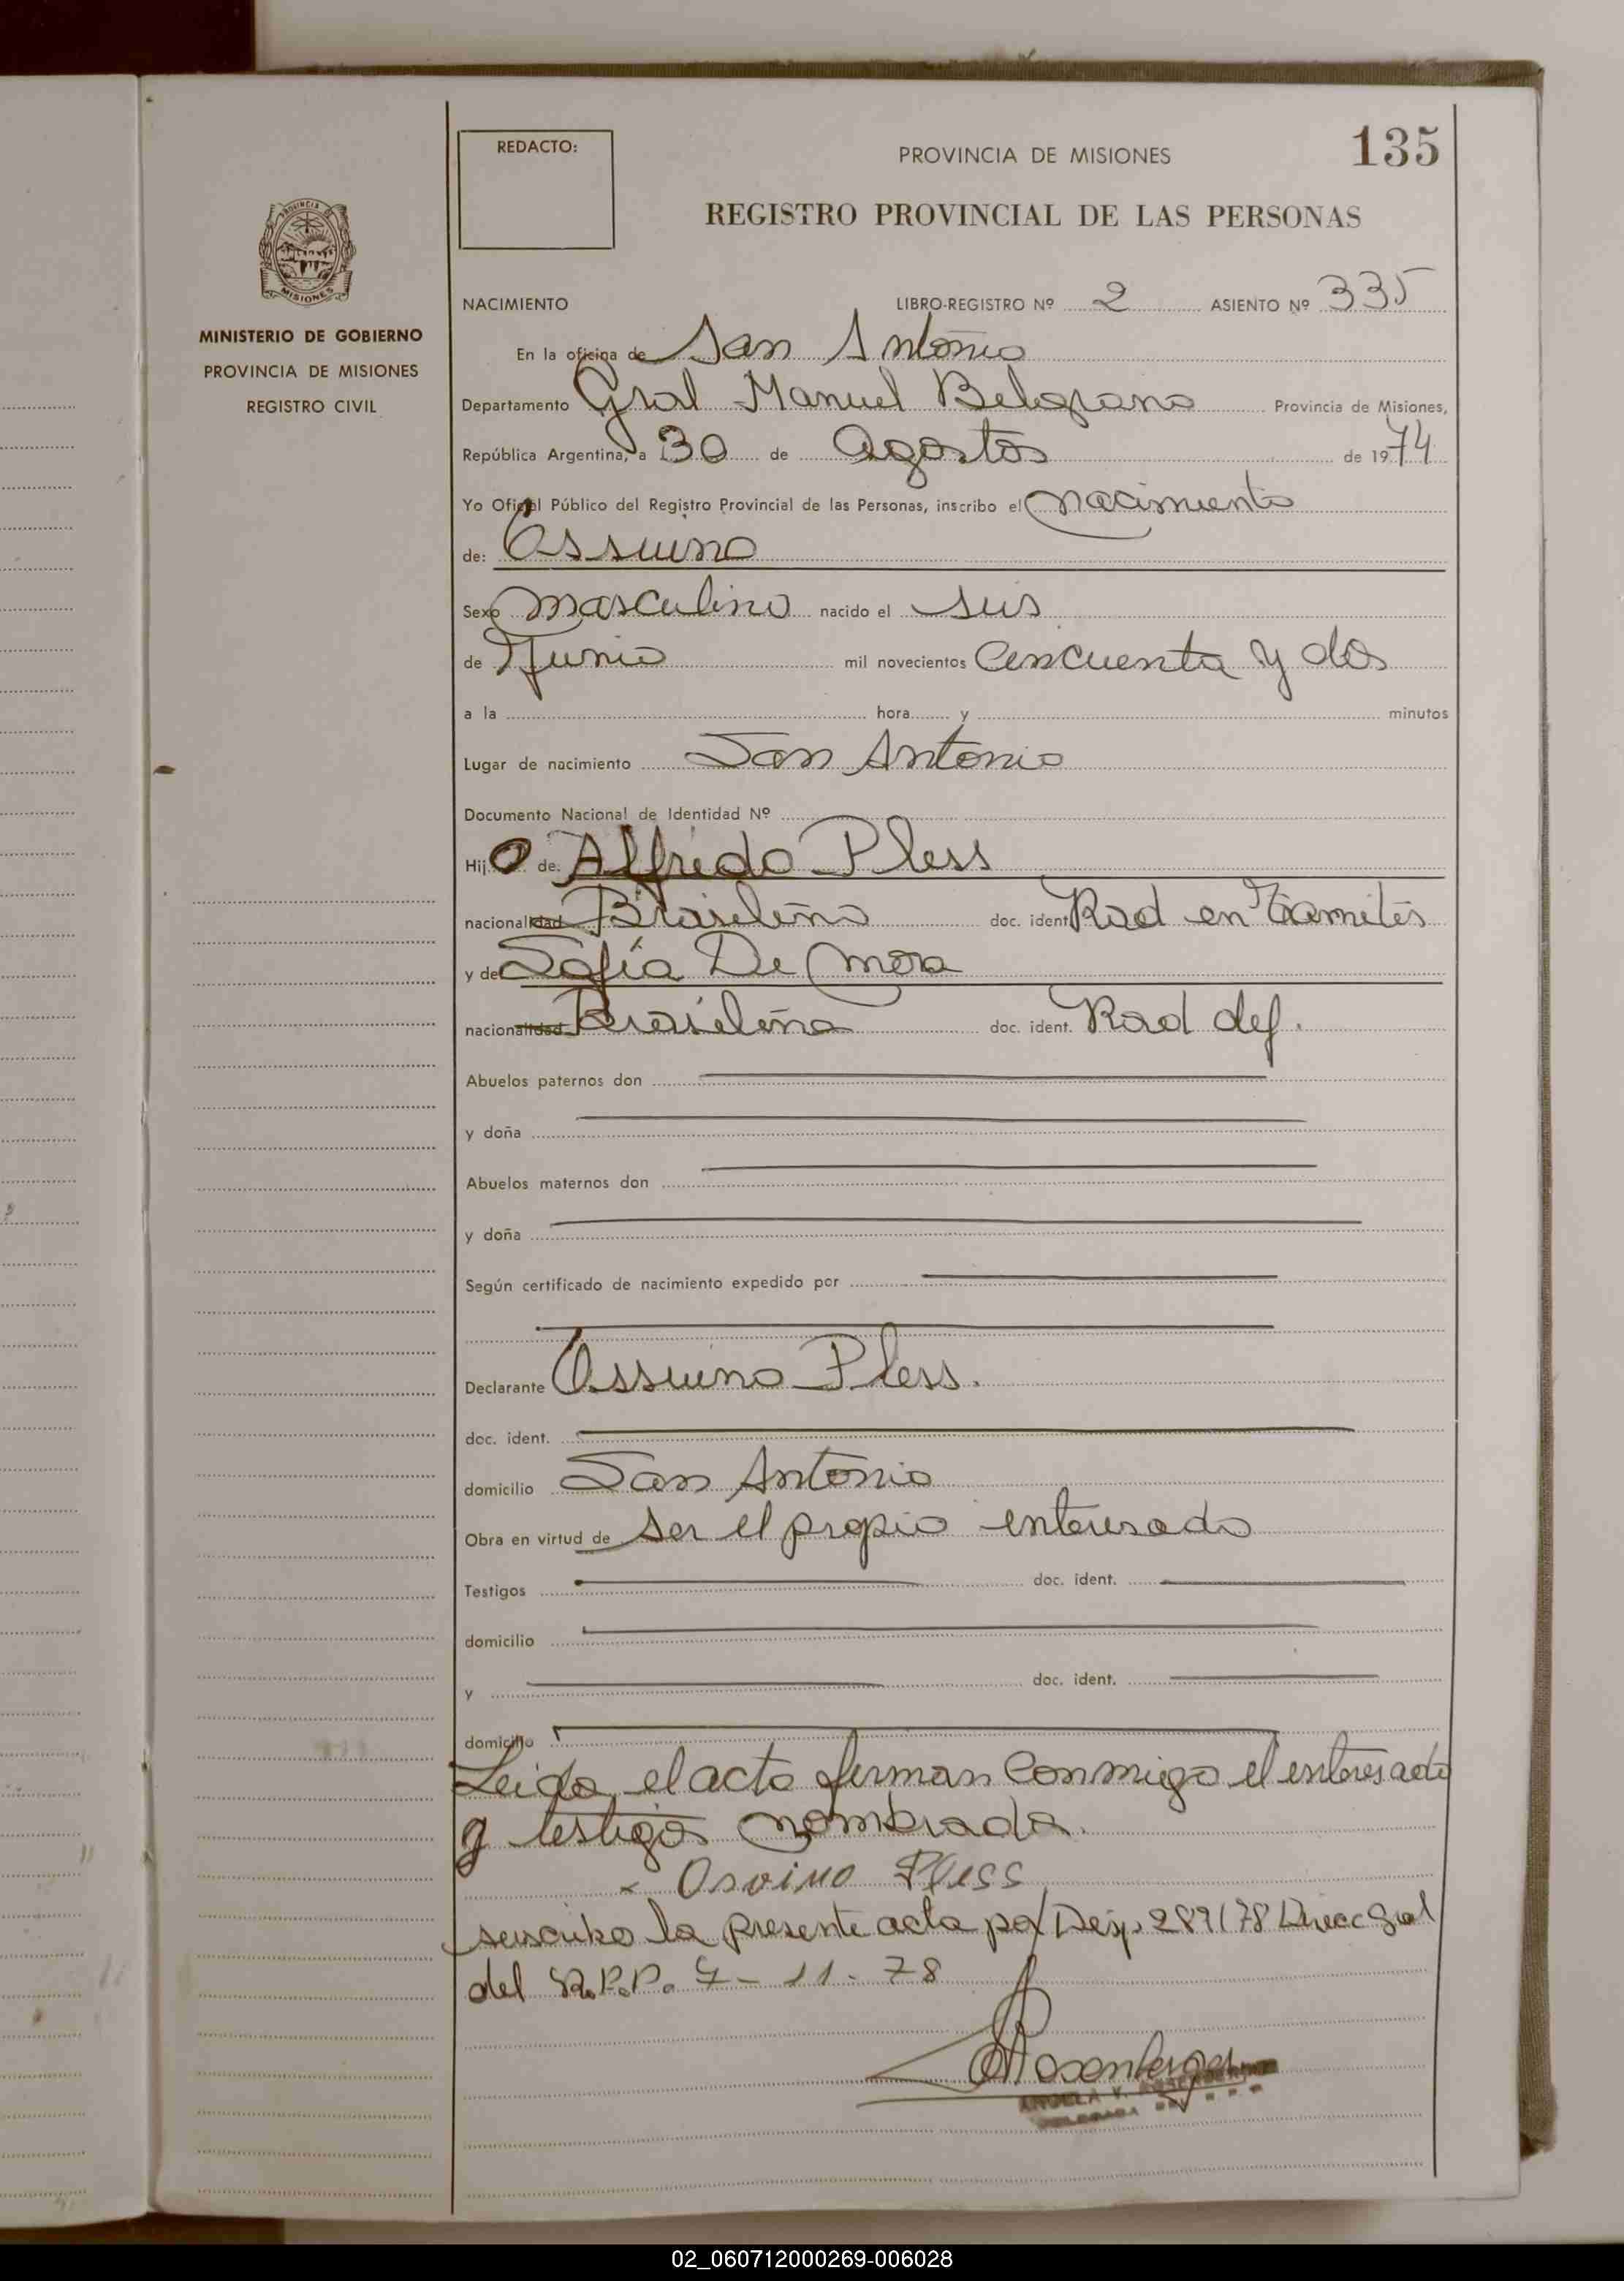 135
REDACTO:
PROVINCIA DE MISIONES
REGISTRO PROVINCIAL DE LAS PERSONAS
PROVINCIA DE
MISIONES
MINISTERIO DE GOBIERNO
PROVINCIA DE MISIONES
REGISTRO CIVIL
NACIMIENTO LIBRO-REGISTRO Nº 2 ASIENTO Nº 335
En la oficina de San Antonio
Departamento Gral Manuel Belgrano Provincia de Misiones,
República Argentina, a 30 de Agosto de 1974
Yo Oficial Público del Registro Provincial de las Personas, inscribo el nacimiento
de: Ossuino
Sexo masculino nacido el seis
de Junio mil novecientos cincuenta y dos
a la hora y minutos
Lugar de nacimiento San Antonio
Documento Nacional de Identidad Nº
Hijo de: Alfredo Pless
nacionalidad Brasileño doc. ident. Rad en Tramites
y de Sofía De Mora
nacionalidad Brasileña doc. ident. Rad def.
Abuelos paternos don
y doña
Abuelos maternos don
y doña
Según certificado de nacimiento expedido por
Declarante Ossuino Pless.
doc. ident.
domicilio San Antonio
Obra en virtud de ser el propio interesado
Testigos doc. ident.
domicilio
y doc. ident.
domicilio
Leida el acta firman conmigo el interesado
y testigos nombrado.
x Osvino Pless
suscribo la presente acta por Disp. 289/78 Direcc Gral
del R.P.P. 7-11-78
ANGELA V. ROSENBERGER
DELEGADA
02_060712000269-006028